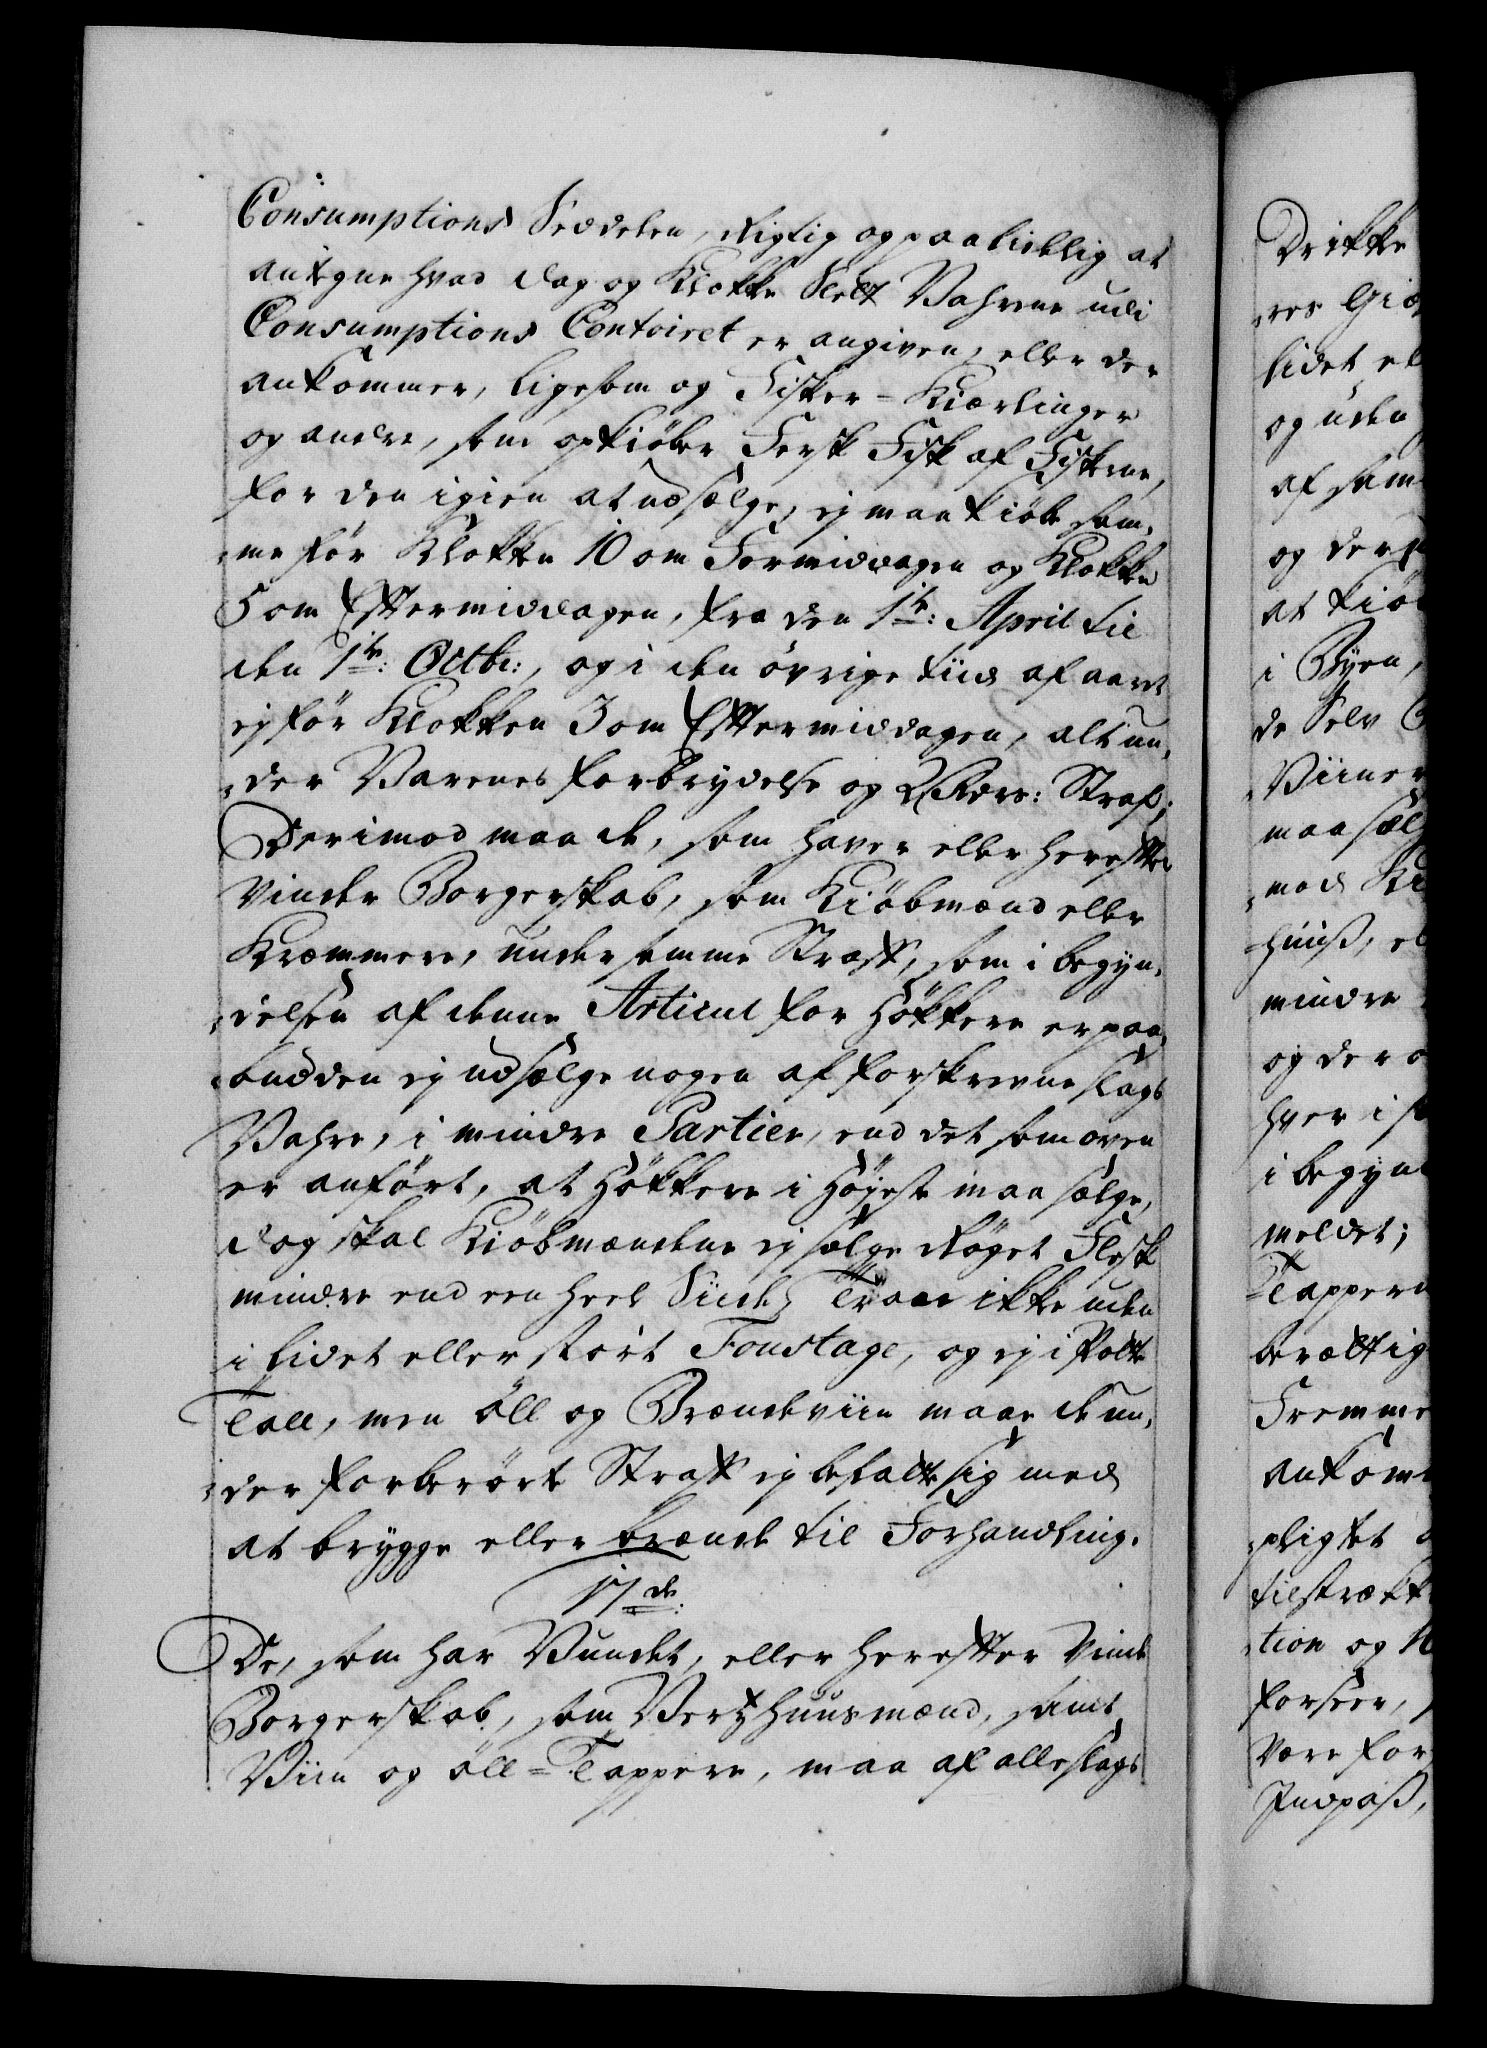 Consumptions Seddelen, rigtig og paalidelig at
antegne hvad dag og Klokke Slet Vahrene udi
Consumptions Contoiret er angiven, eller der
ankommer, ligesom og Fisker-Kiærlinger
og andre, som opkiöber Fersk Fisk af Fiskerne,
for den igien at udsælge, ej maa kiöbe sam-
me för Klokken 10 om Formiddagen og Klokken
5 om Eftermiddagen, fra den 1te: April til
den 1te: Octbr:, og i den övrige tiid af aaret
ej för Klokken 3 om Eftermiddagen, alt un-
der Varenes forbrydelse og 2 Rdrs: Straf;
Derimod maa de, som haver eller herefter
vinder Borgerskab, som Kiöbmænd eller
Kræmmere, under samme Straff, som i begyn-
delsen af denne Articul for Hökkere er paa-
budden ej udsælge nogen af forskrevne slags
Vahre, i mindre Partier, end det som oven
er anfört, at Hökkere i Höyeste maa sælge,
dog skal Kiöbmændene ej sælge Röget Flesk
mindre end een heel Siide, Traae ikke uden
i lidet eller stort Foustage, og ej i Potte
Tall, men Öll og Brændeviin maae de un-
der forberörte Straff ej befatte sig med
at brygge eller brænde til Forhandling.
17de:
De, som har Vundet, eller herefter vinde
Borgerskab, som Vertzhuusmænd, samt
Viin og Öll-Tappere, maa af alle slags
Drikke
res Giæ
lidet el
og uden
af sam
og ders
at kiö
i Byen,
de Selv
Viiner
maa sælg
mod Ki
huuß, el
mindre
og der
hver i
i begyn
meldet;
Tappern
berættig
Fremme
ankom
pligtet
tilstrækk
tion og
forseer,
være for
Indpaß,